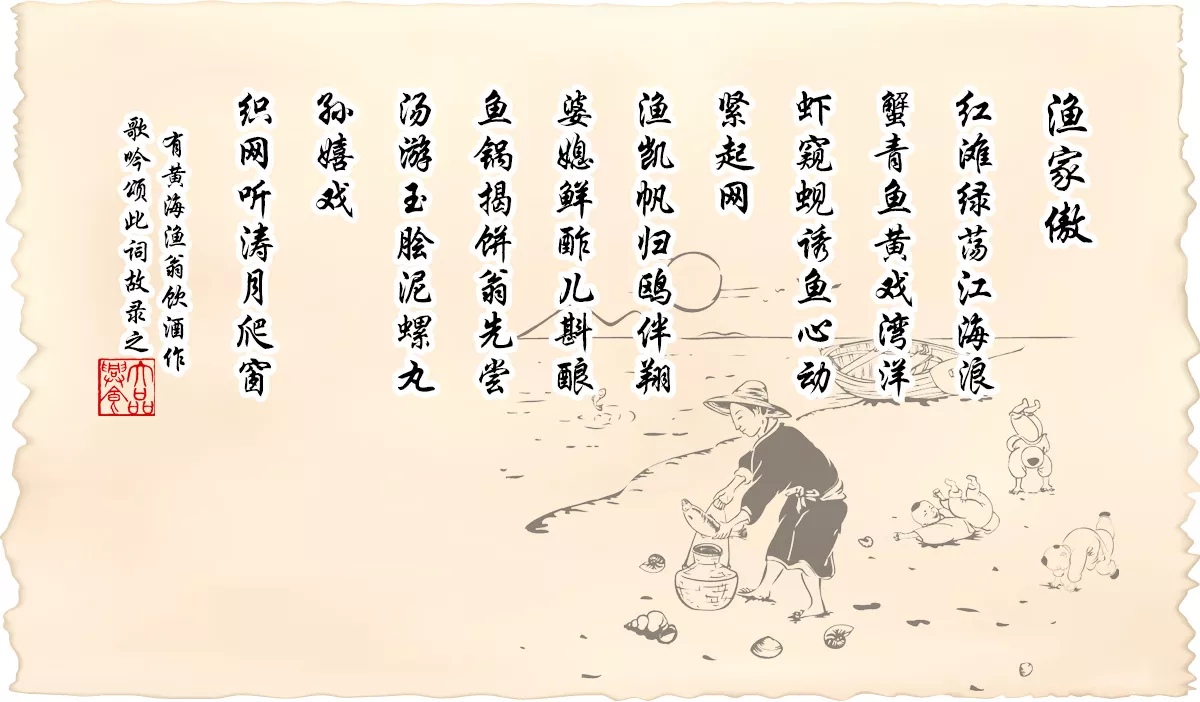 渔家傲
红滩绿荡江海浪
蟹青鱼黄戏湾洋
虾窥蚬诱鱼心动
紧起网
渔凯帆归鸥伴翔
婆媳鲜酢儿斟酿
鱼锅揭饼翁先尝
汤游玉脍泥螺丸
孙嬉戏
织网听涛月爬窗
有黄海渔翁饮酒作
歌吟颂此词故录之